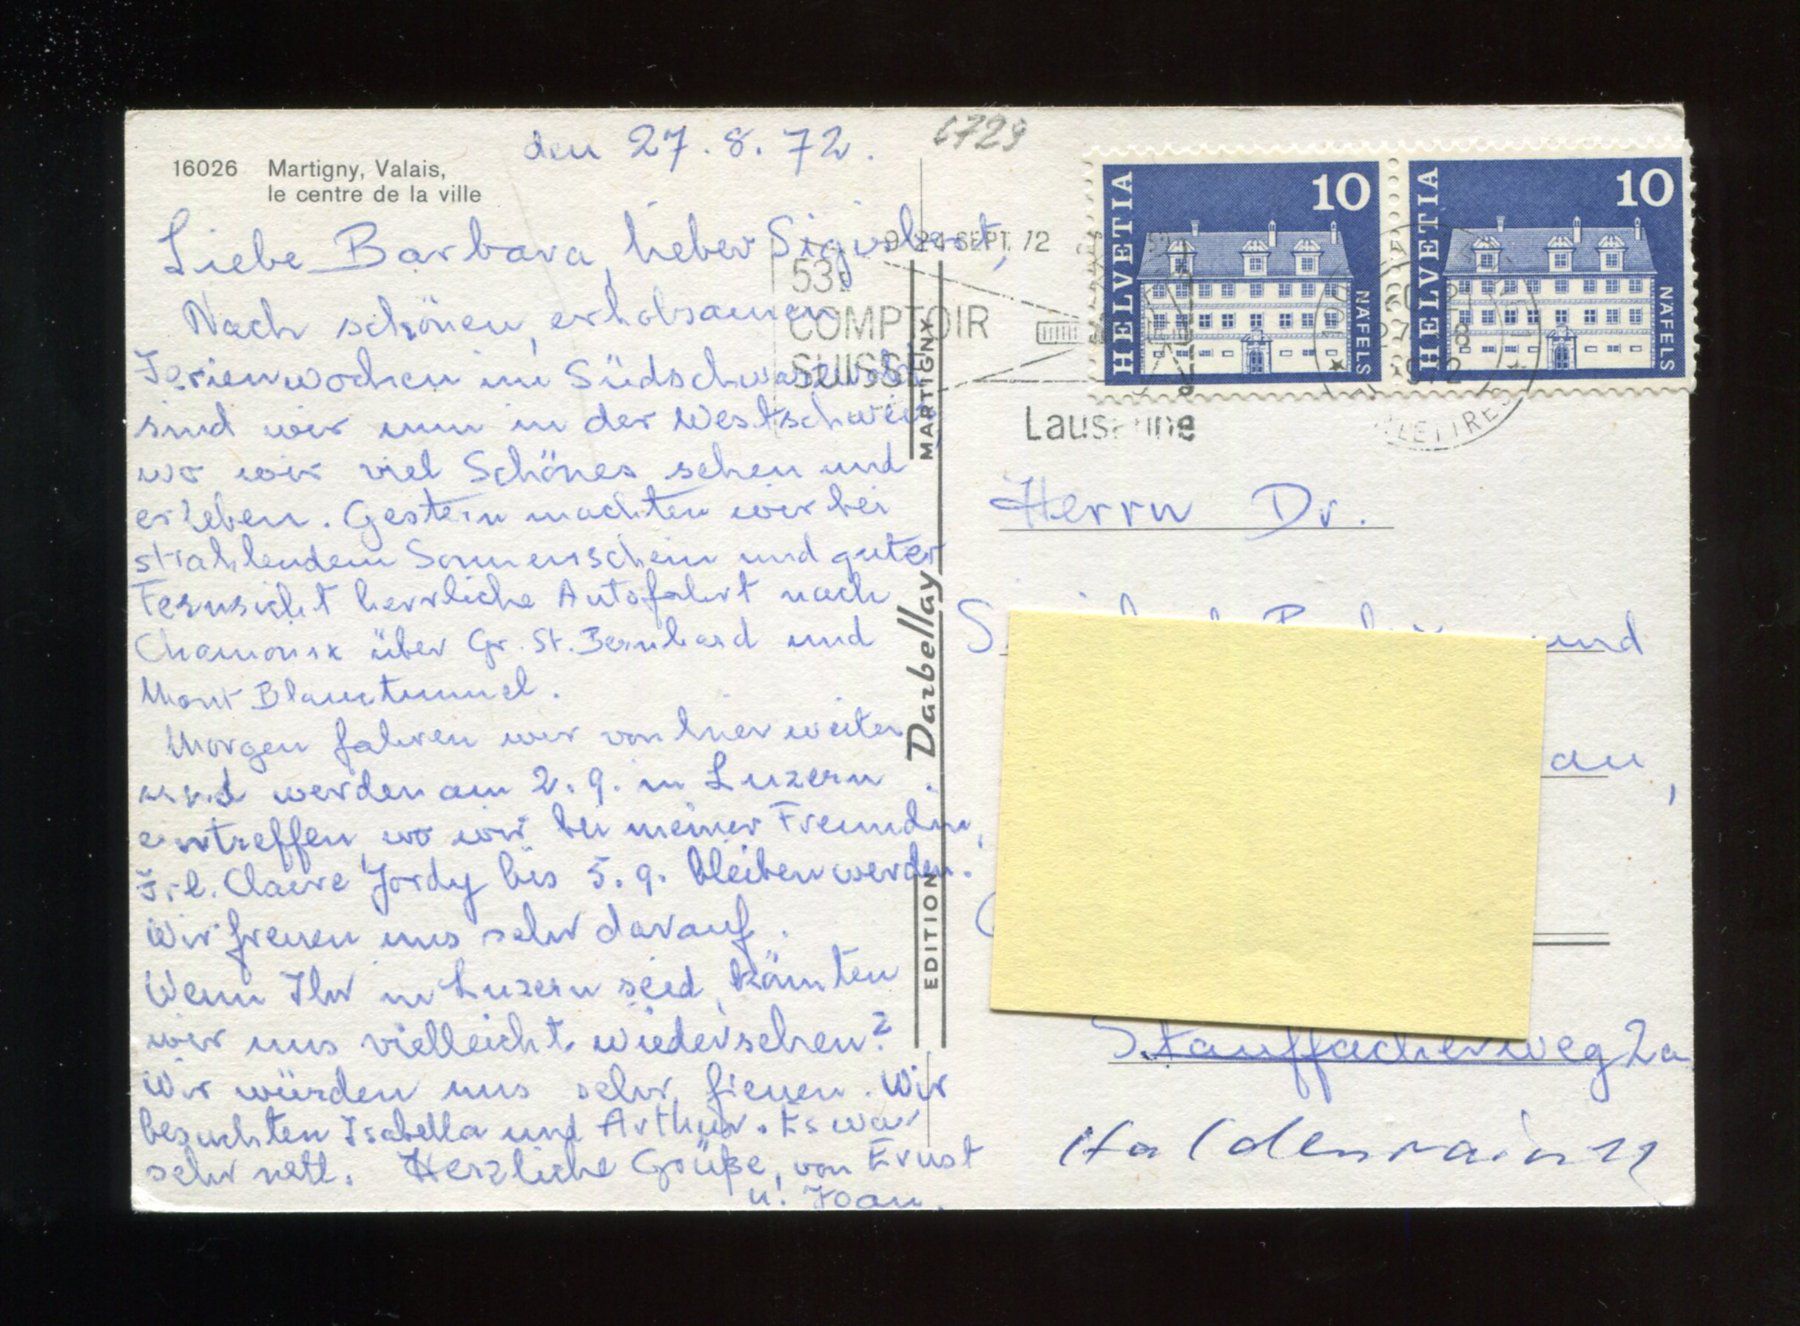 16026 Martigny, Valais,
le centre de la ville
den 27.8.72.
6729
Liebe Barbara, lieber Sigisbert,
Nach schönen, erholsamen
Ferienwochen im Südschwarzwald
sind wir nun in der Westschweiz,
wo wir viel Schönes sehen und
erleben. Gestern machten wir bei
strahlendem Sonnenschein und guter
Fernsicht herrliche Autofahrt nach
Chamonix über Gr. St. Bernhard und
Mont Blanctunnel.
Morgen fahren wir von hier weiter
und werden am 2.9. in Luzern
eintreffen, wo wir bei meiner Freundin,
Frl. Claire Jordy bis 5.9. bleiben werden.
Wir freuen uns sehr darauf.
Wenn Ihr in Luzern seid, könnten
wir uns vielleicht wiedersehen?
Wir würden uns sehr freuen. Wir
besuchten Isabella und Arthur. Es war
sehr nett. Herzliche Grüße, von Ernst
u. Joan.
EDITION Darbellay MARTIGNY
9-24 SEPT. 72
53e
COMPTOIR
SUISSE
Lausanne
HELVETIA 10 NÄFELS
HELVETIA 10 NÄFELS
27 8
1972
LETTRES
Herrn Dr.
und
au,
Stauffacherweg 2a
Haldenrain 11